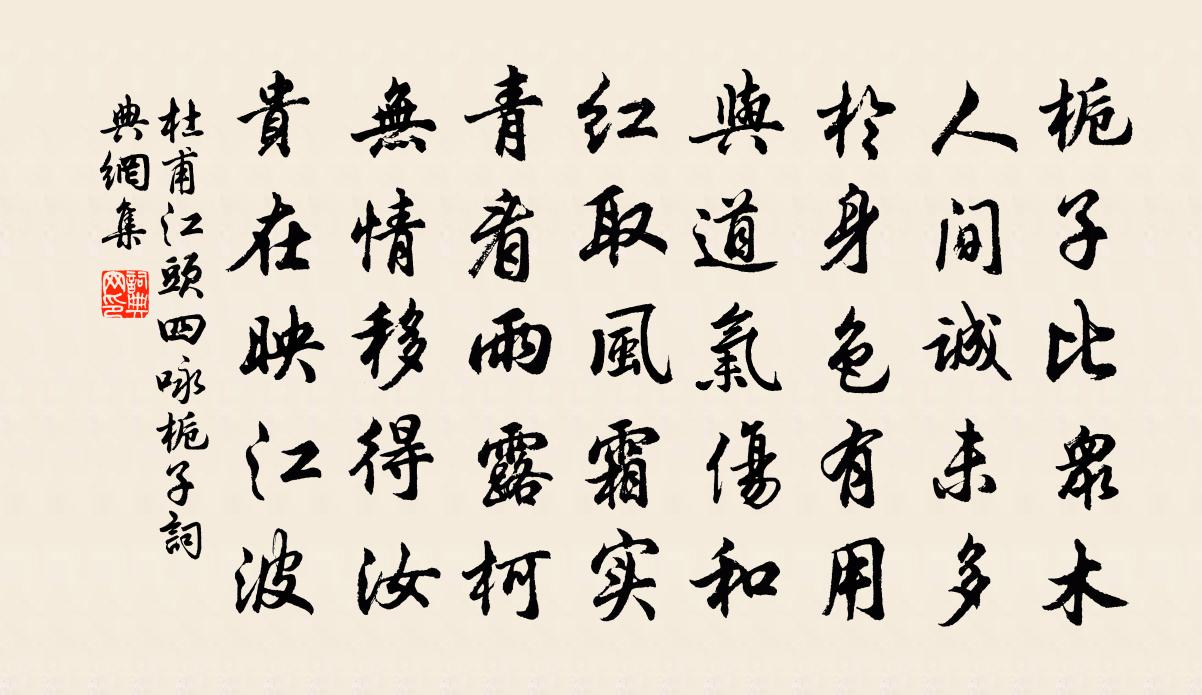 栀子比衆木
人间誠未多
於身色有用
與道氣傷和
红取風霜实
青看雨露柯
無情移得汝
貴在映江波
杜甫江頭四咏栀子詞
典網集
詞典
网印